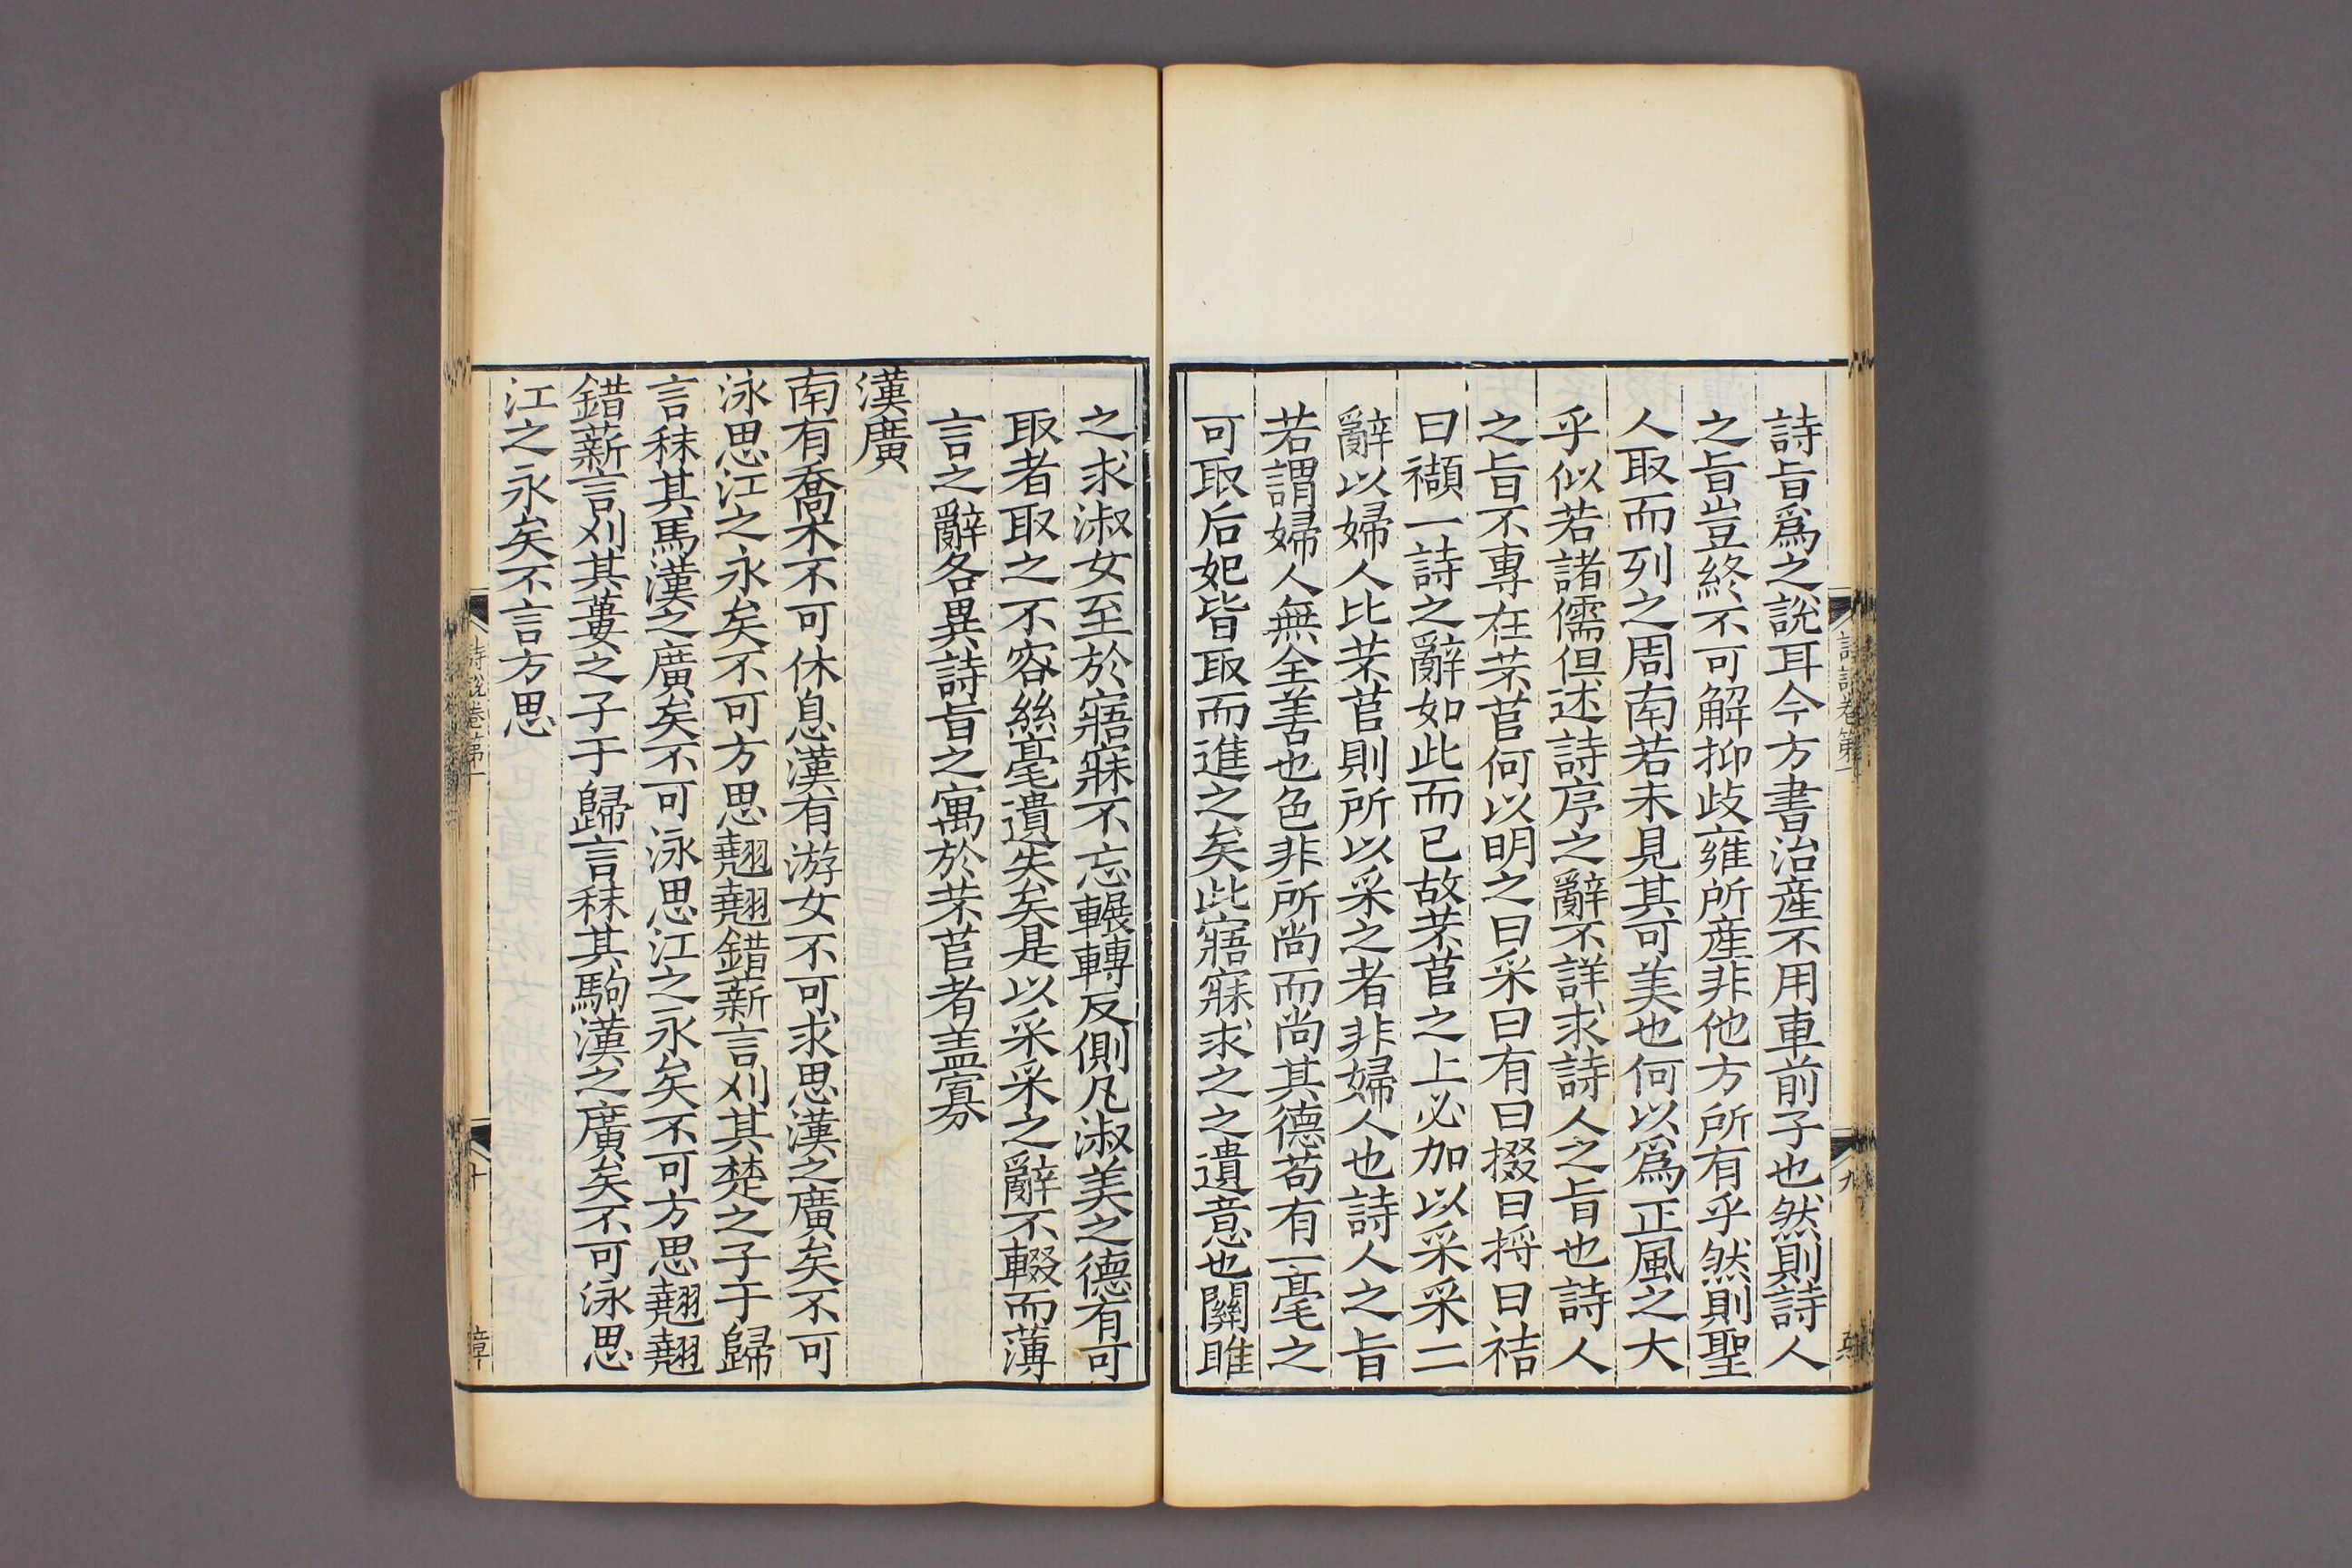 詩旨爲之說耳今方書治產不用車前子也然則詩人
之旨豈終不可解抑歧雍所產非他方所有乎然則聖
人取而列之周南若未見其可美也何以爲正風之大
乎似若諸儒但述詩序之辭不詳求詩人之旨也詩人
之旨不專在芣苢何以明之曰采曰有曰掇曰捋曰袺
曰襭一詩之辭如此而已故芣苢之上必加以采采二
辭以婦人比芣苢則所以采之者非婦人也詩人之旨
若謂婦人無全善也色非所尚而尚其德苟有一毫之
可取后妃皆取而進之矣此寤寐求之之遺意也關雎
之求淑女至於寤寐不忘輾轉反側凡淑美之德有可
取者取之不容絲毫遺失矣是以采采之辭不輟而薄
言之辭各異詩旨之寓於芣苢者盖寡
漢廣
南有喬木不可休息漢有游女不可求思漢之廣矣不可
泳思江之永矣不可方思翹翹錯薪言刈其楚之子于歸
言秣其馬漢之廣矣不可泳思江之永矣不可方思翹翹
錯薪言刈其蔞之子于歸言秣其駒漢之廣矣不可泳思
江之永矣不言方思
詩說卷第一
十
章
九